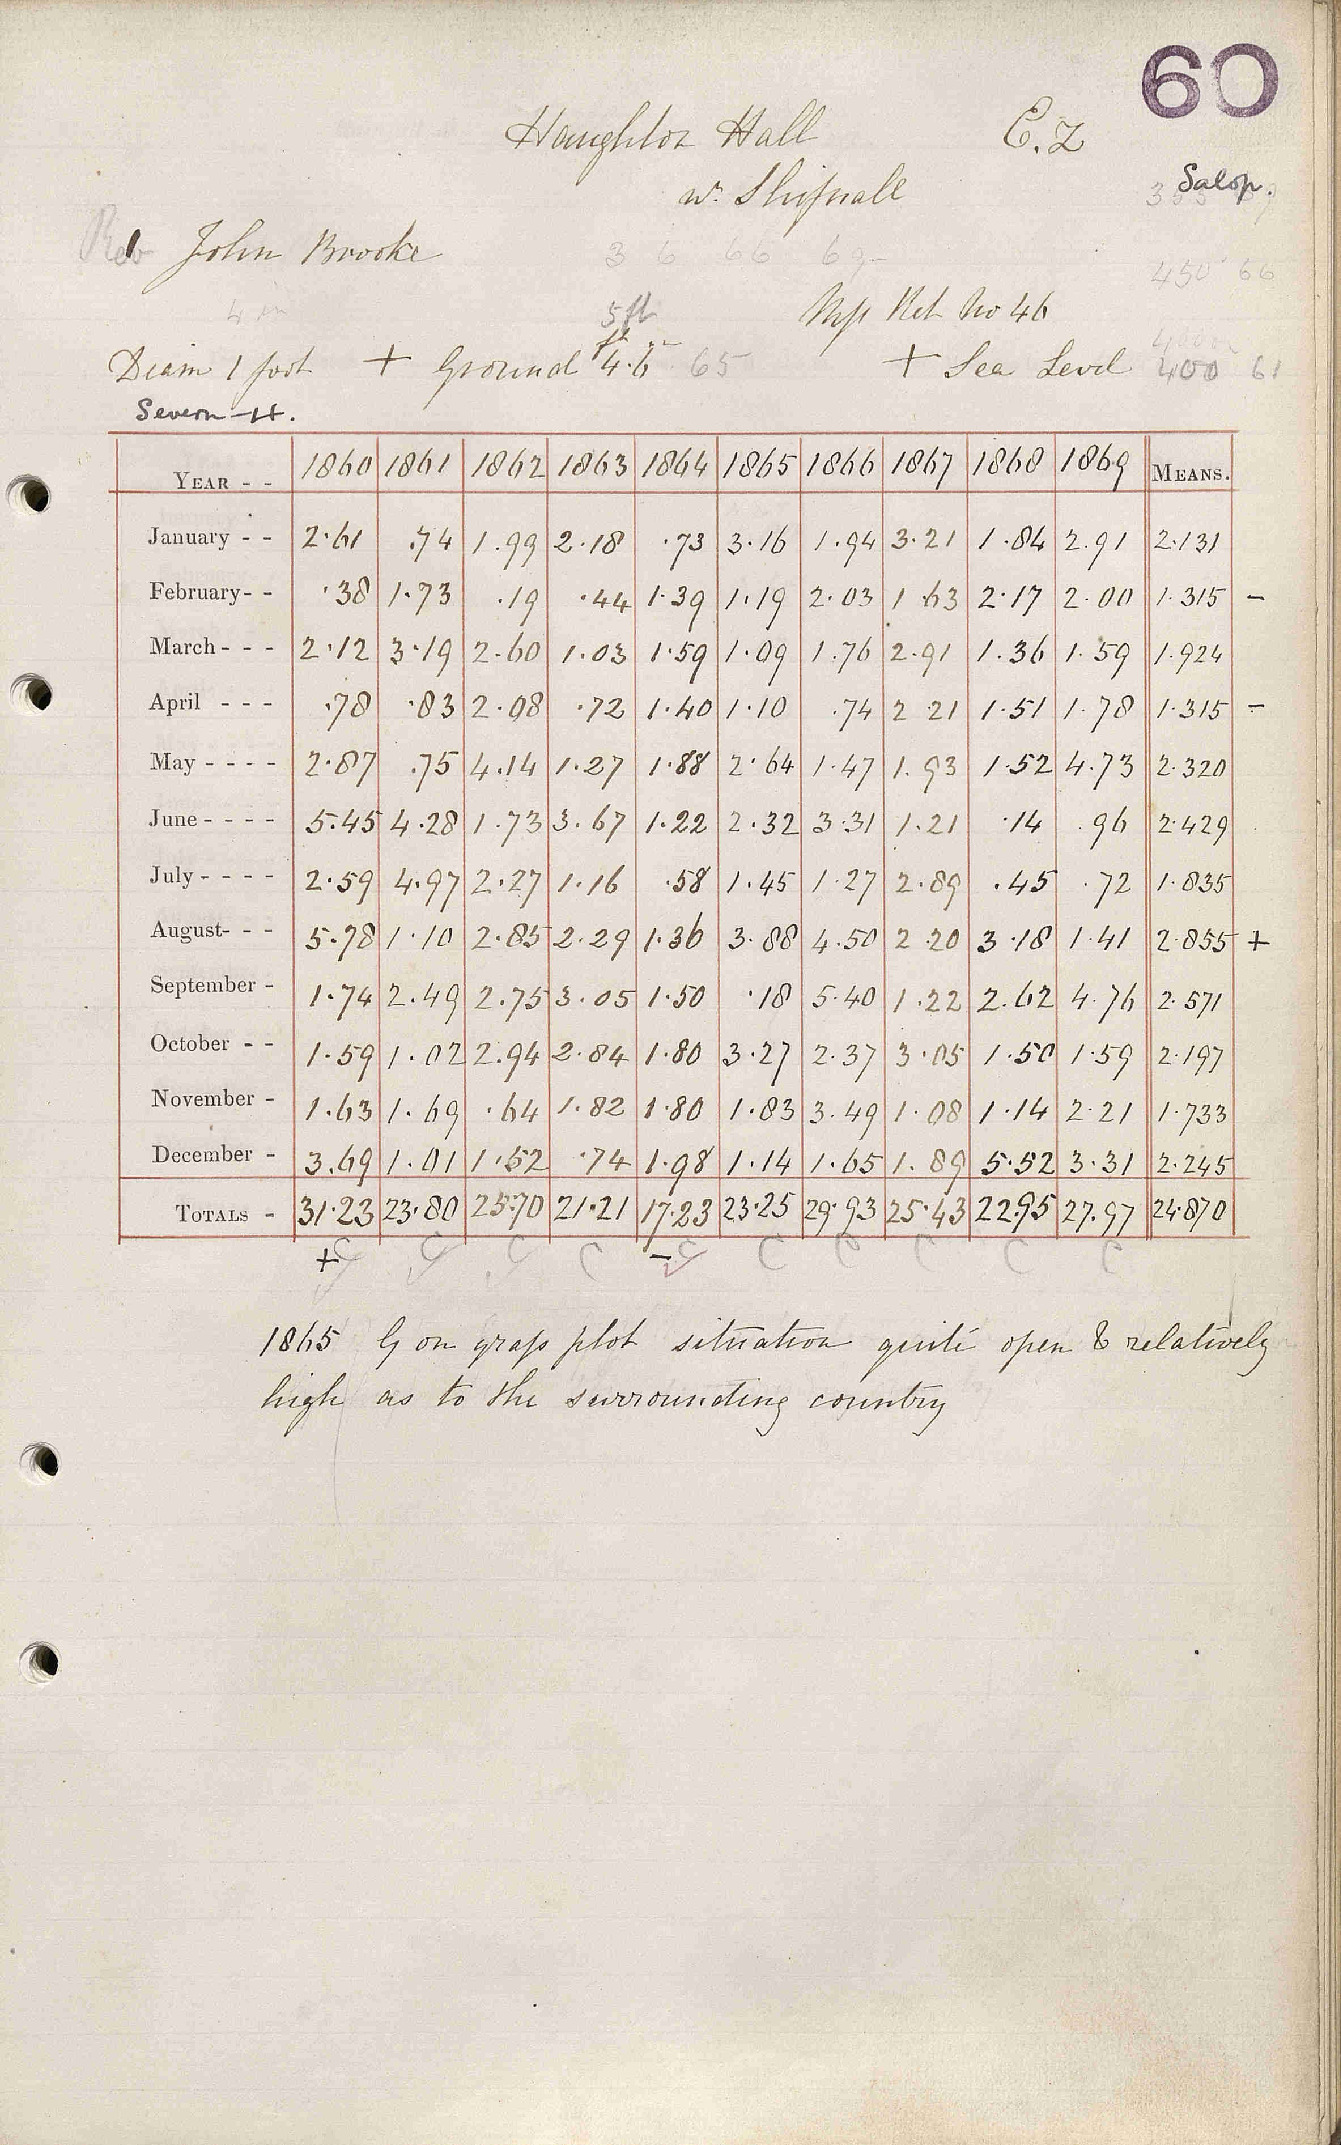 60
Haughton Hall C.Z
nr. Shifnall
Salop.
Rev John Brooke
3 6 66 69
450 66
4 in 5 ft
Mp Ret No 46
Diam 1 foot + Ground 4.6 65 + Sea Level 400 61
Severn H.
YEAR - - 1860 1861 1862 1863 1864 1865 1866 1867 1868 1869 MEANS.
January - - 2.61 .74 1.99 2.18 .73 3.16 1.94 3.21 1.84 2.91 2.131
February - - .38 1.73 .19 .44 1.39 1.19 2.03 1.63 2.17 2.00 1.315 -
March - - - 2.12 3.19 2.60 1.03 1.59 1.09 1.76 2.91 1.36 1.59 1.924
April - - - .78 .83 2.08 .72 1.40 1.10 .74 2.21 1.51 1.78 1.315 -
May - - - - 2.87 .75 4.14 1.27 1.88 2.64 1.47 1.93 1.52 4.73 2.320
June - - - - 5.45 4.28 1.73 3.67 1.22 2.32 3.31 1.21 .14 .96 2.429
July - - - - 2.59 4.97 2.27 1.16 .58 1.45 1.27 2.89 .45 .72 1.835
August - - - 5.78 1.10 2.85 2.29 1.36 3.88 4.50 2.20 3.18 1.41 2.855 +
September - 1.74 2.49 2.75 3.05 1.50 .18 5.40 1.22 2.62 4.76 2.571
October - - 1.59 1.02 2.94 2.84 1.80 3.27 2.37 3.05 1.50 1.59 2.197
November - 1.63 1.69 .64 1.82 1.80 1.83 3.49 1.08 1.14 2.21 1.733
December - 3.69 1.01 1.52 .74 1.98 1.14 1.65 1.89 5.52 3.31 2.245
TOTALS - 31.23 23.80 25.70 21.21 17.23 23.25 29.93 25.43 22.95 27.97 24.870
+ C C C C - C C C C C C
1865 G on grass plot situation quite open & relatively
high as to the surrounding country